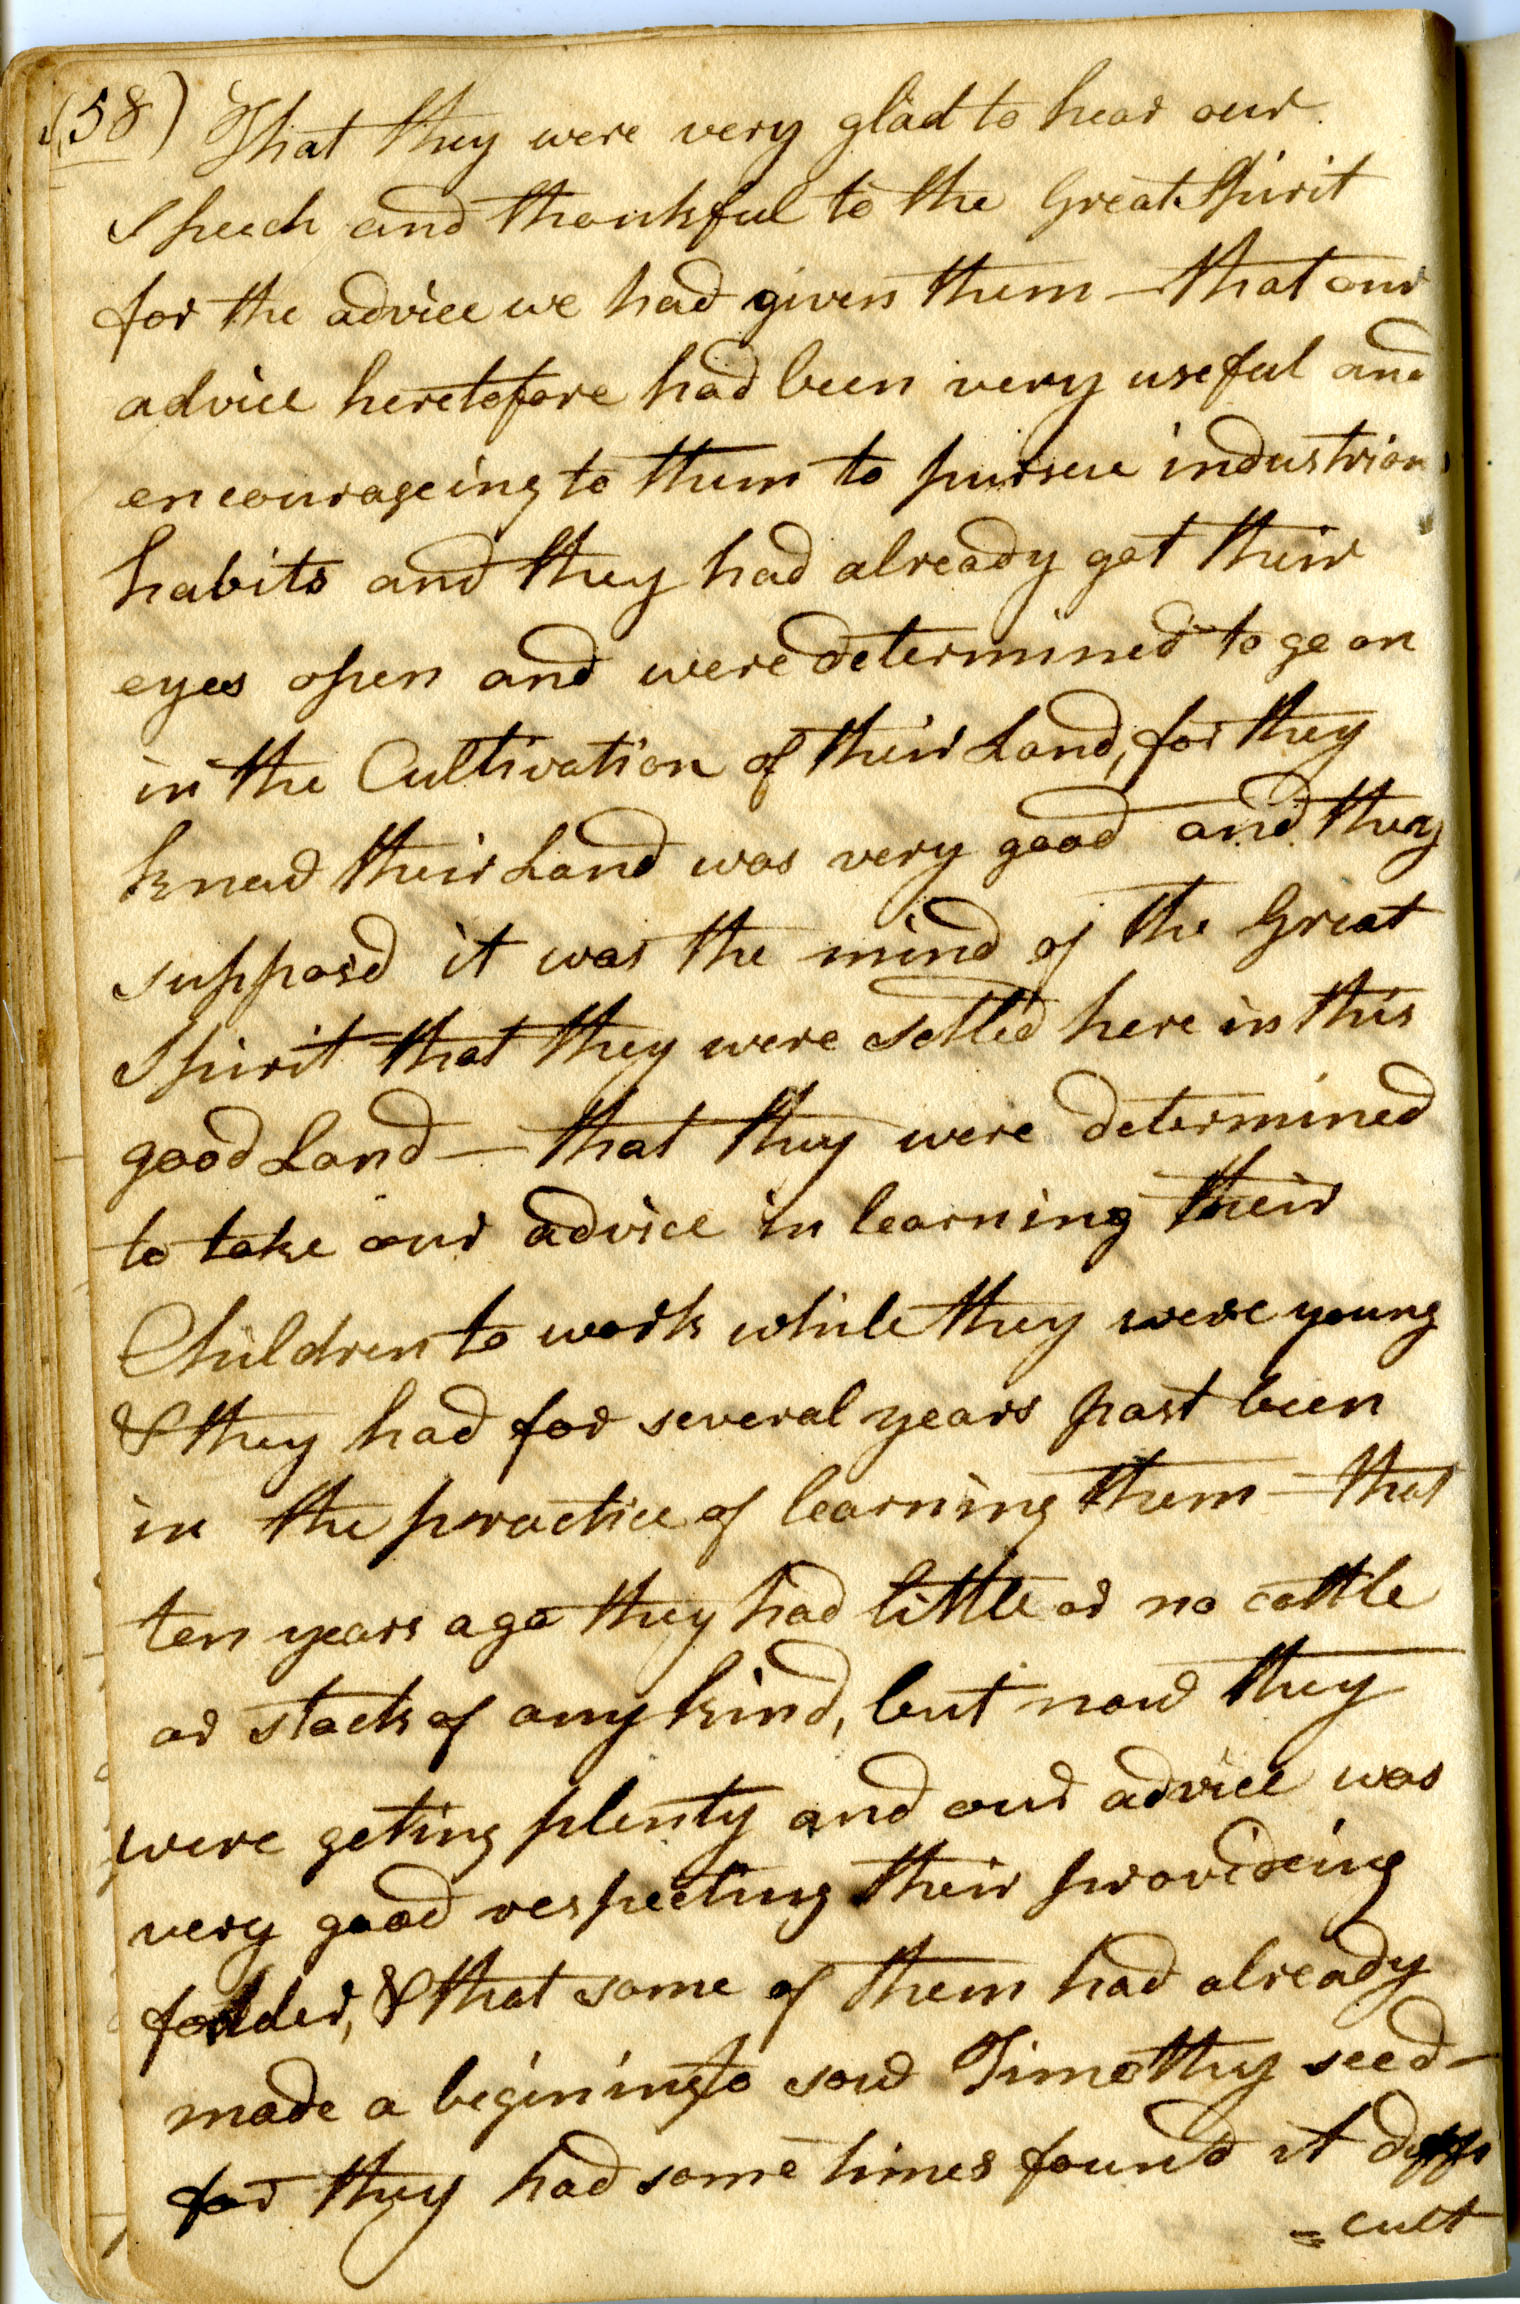 (58) That they were very glad to hear our
speech and thankful to the Great Spirit
for the advice we had given them — that our
advice heretofore had been very useful and
encourageing to them to pursue industrious
habits and they had already got their
eyes open and were determined to go on
in the Cultivation of their Land, for they
knew their Land was very good and they
supposd it was the mind of the Great
Spirit that they were setled here in this
good Land — that they were determined
to take our advice in learning their
Children to work while they were young
& they had for several years past been
in the practice of learning them — that
ten years ago they had little or no cattle
or stock of any kind, but now they
were geting plenty and our advice was
very good respecting their provideing
fodder, & that some of them had already
made a begining to sow Timothy seed —
for they had some times found it diffi
= cult